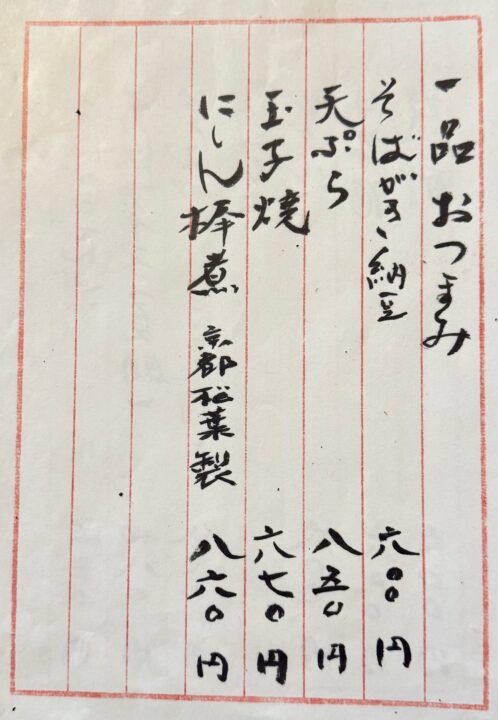 一品 おつまみ
そばがき 納豆 六〇〇円
天ぷら 八五〇円
玉子焼 六七〇円
にしん棒煮 京都松葉製 八六〇円